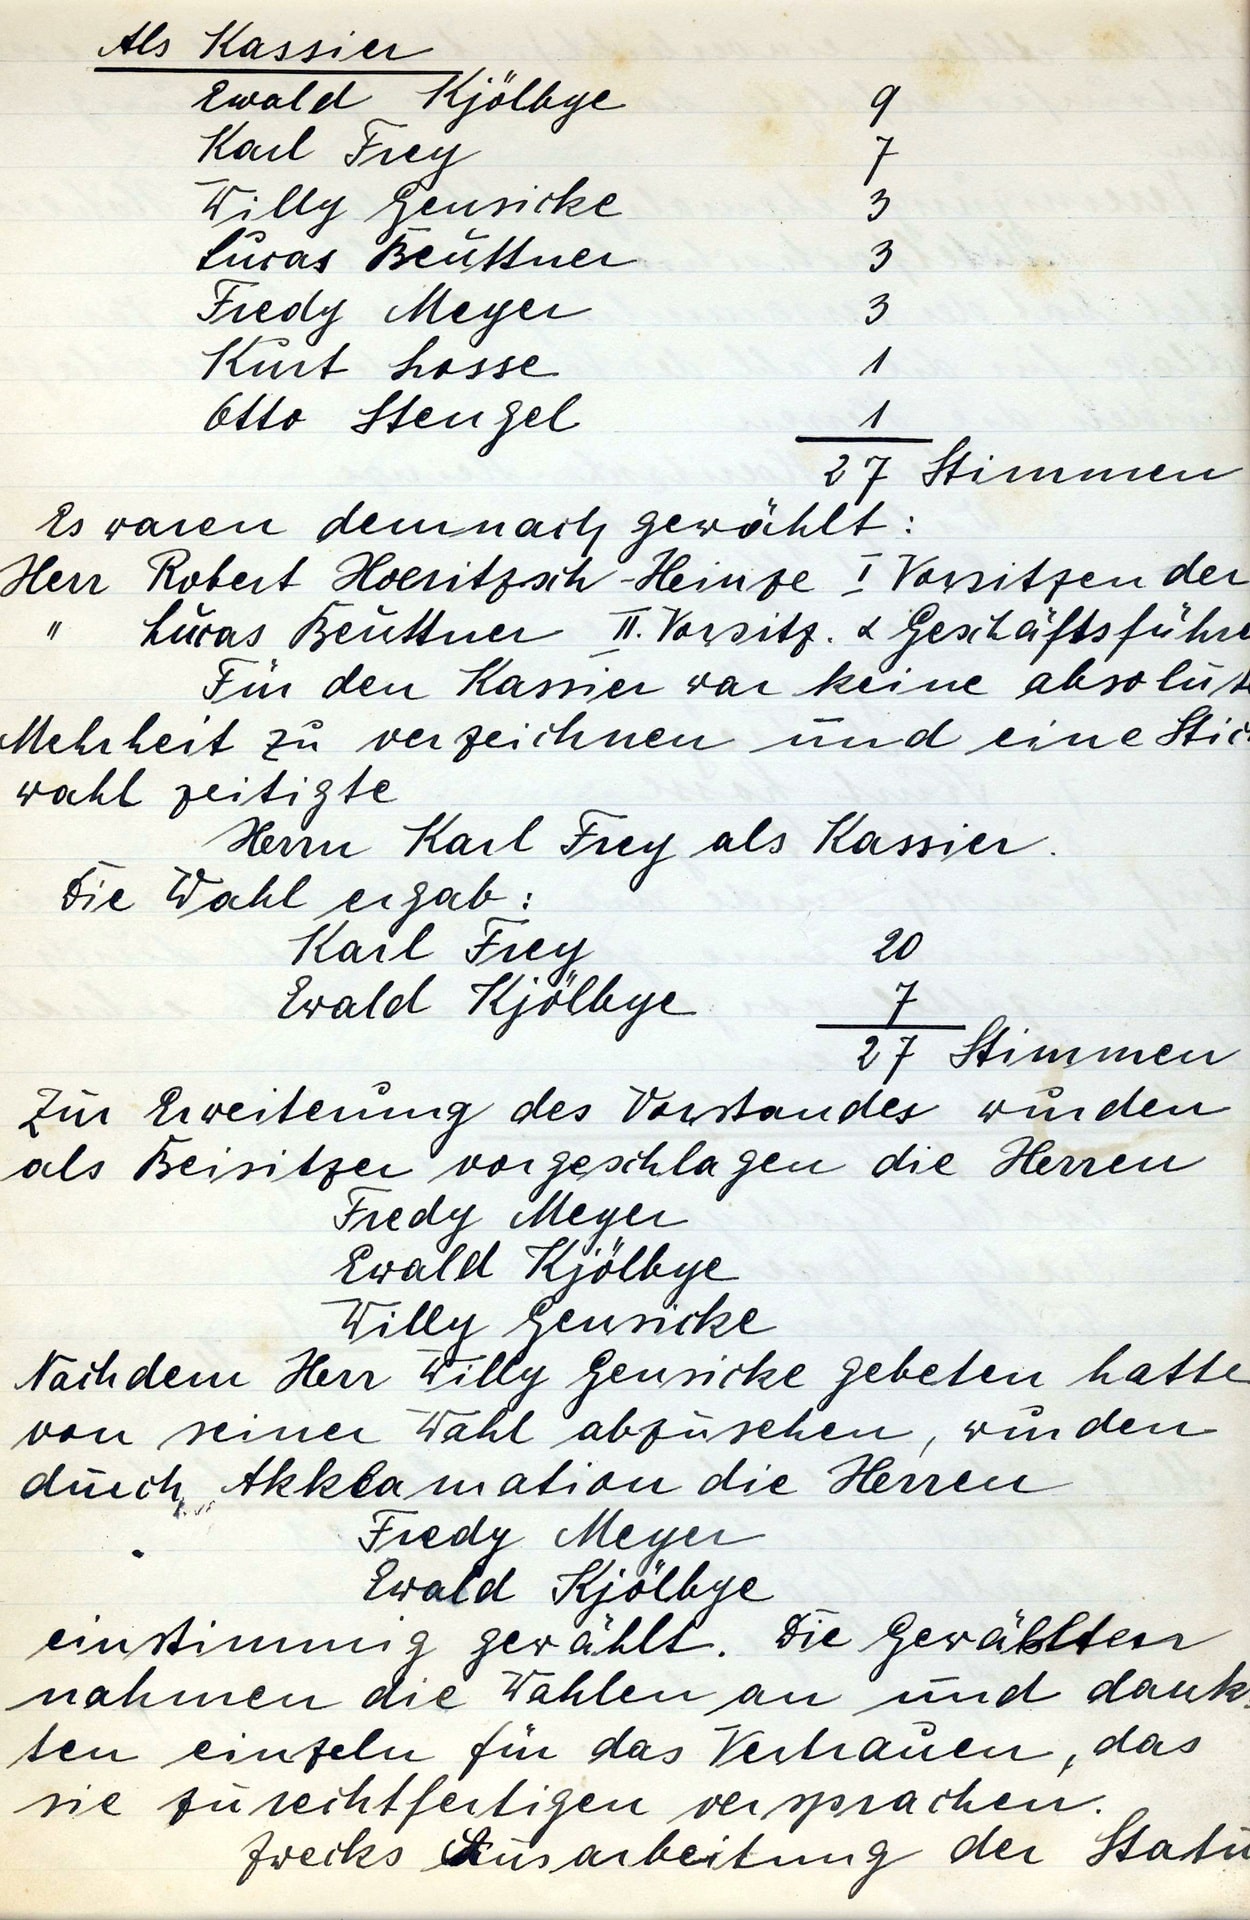 Als Kassier
Ewald Kjölbye 9
Karl Frey 7
Willy Gensicke 3
Lucas Beuttner 3
Fredy Meyer 3
Kurt Losse 1
Otto Stengel 1
27 Stimmen
Es waren demnach gewählt:
Herr Robert Hoeritzsch-Heinze I Vorsitzender
" Lucas Beuttner II. Vorsitz. & Geschäftsführe
Für den Kassier war keine absolute
Mehrheit zu verzeichnen und eine Stic
wahl zeitigte
Herrn Karl Frey als Kassier.
Die Wahl ergab:
Karl Frey 20
Ewald Kjölbye 7
27 Stimmen
Zur Erweiterung des Vorstandes wurden
als Beisitzer vorgeschlagen die Herren
Fredy Meyer
Ewald Kjölbye
Willy Gensicke
Nachdem Herr Willy Gensicke gebeten hatte
von seiner Wahl abzusehen, wurden
durch Akklamation die Herren
Fredy Meyer
Ewald Kjölbye
einstimmig gewählt. Die Gewählten
nahmen die Wahlen an und dank-
ten einzeln für das Vertrauen, das
sie zu rechtfertigen versprachen.
Zwecks Ausarbeitung der Statu